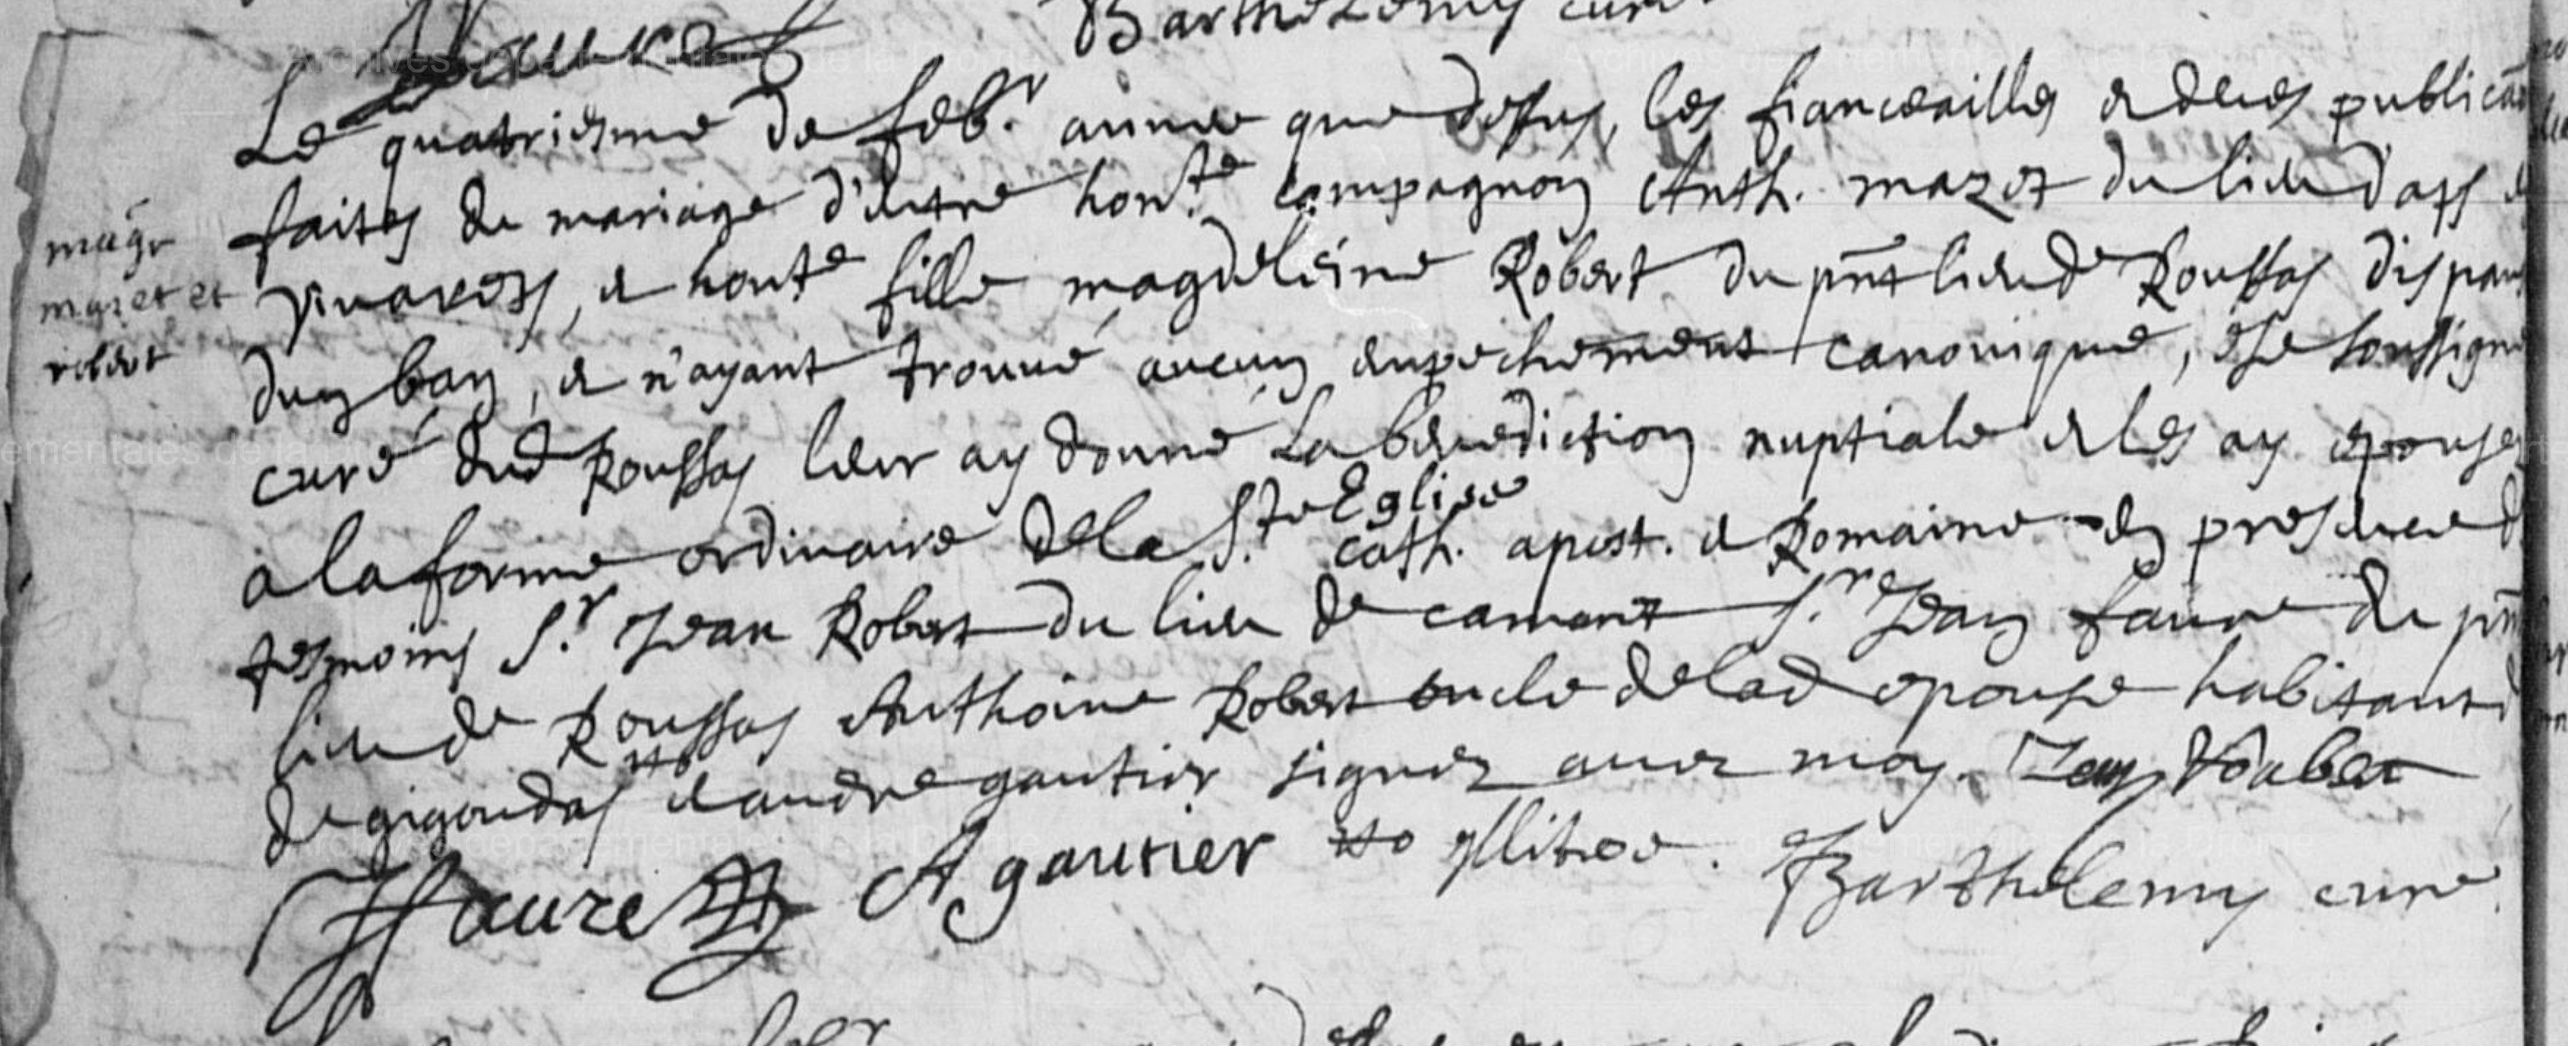 faure
Barthelemy curé
Le quatriesme de feb.r année que dessus, les fiancailles et deues publica
faites du mariage d'entre hon.te compagnon Anth. mazet du lieu d'aps
magr vivarets, et honte fille magdeleine Robert du pnt lieu de Roussas dispan
mazet et
robert dun ban, et n'ayant trouvé aucun empechement canonique, je soussigne
curé dud Roussas leur ay donné La benediction nuptiale et les ay epouse
a la forme ordinaire de la S.te Eglise cath. apost. et Romaine en presence d
tesmoins S.r Jean Robert du lieu de camaret S.r Jean faure du pn
lieu de Roussas Anthoine Robert oncle de lad epouse habitant
de gigondas et andre gautier signez avec moy. Jean Roubert
Jfaure A gautier no illitere. Barthelemy curé